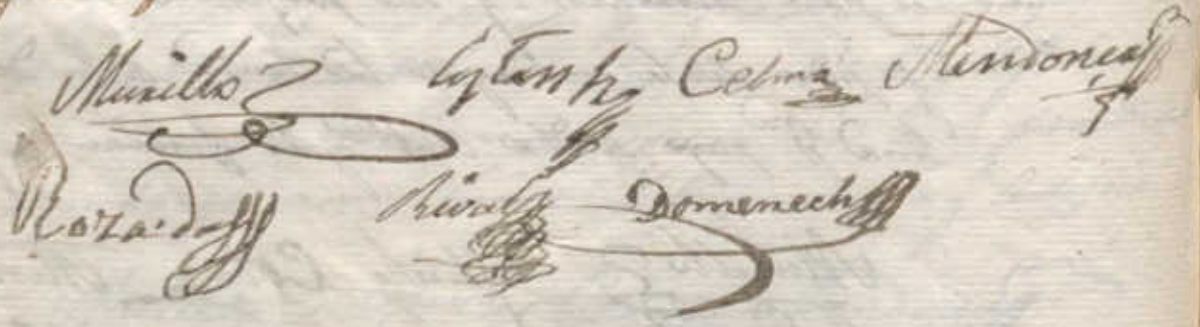 Murillo Celma Mendonca
Rozado Rivas Domenech